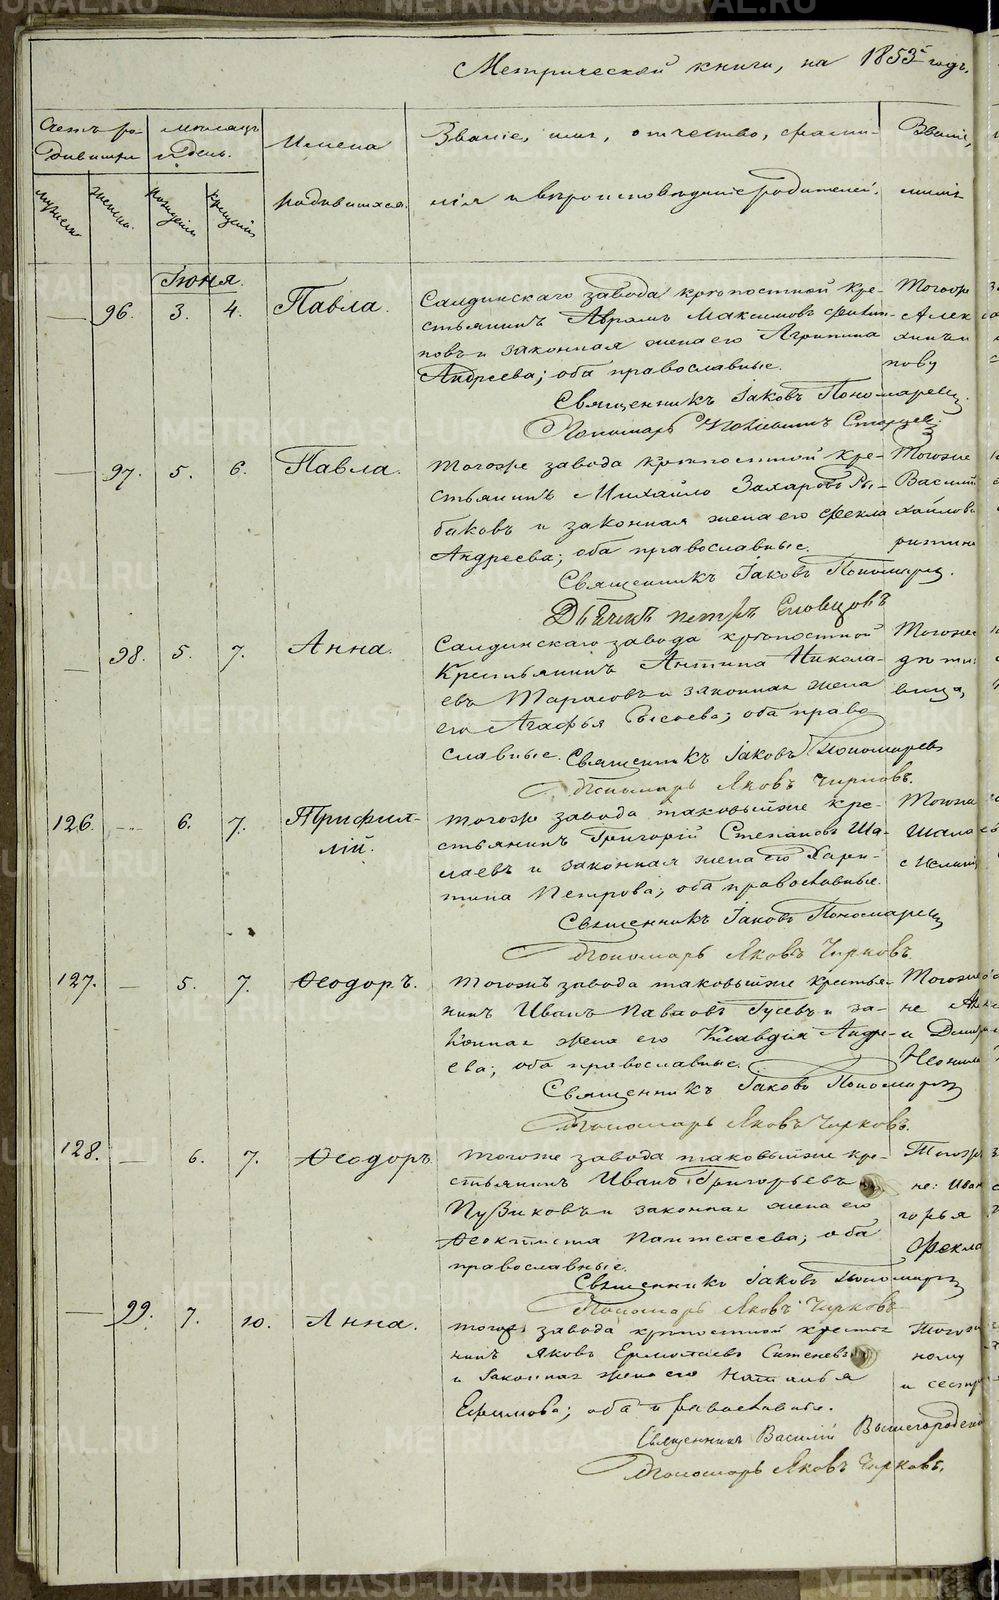 Метрической книги, на 1853 годъ,
Счетъ ро-
дившихся
мѣсяцъ
и день.
Имена
родившихся.
Званіе, имя, отчество, фами-
лія и вѣроисповѣданіе родителей.
Званіе,
имя
мужеска
женска.
рожденія
крещенія
Іюня.
— 96. 3. 4. Павла.
Салдинскаго завода крѣпостной кре-
стьянинъ Аврамъ Максимовъ
новъ и законная жена его Агрипина
Андреева; оба православные.
Священникъ Іаковъ Пономаревъ.
Пономарь
Тогоже
Алек
пову
— 97. 5. 6. Павла.
Тогоже завода крѣпостной кре-
стьянинъ Михайло Захаровъ Ры-
баковъ и законная жена его Фекла
Андреева; оба православные.
Священникъ Іаковъ Пономаревъ.
Дьячекъ Петръ Словцовъ
Тогоже
Василій
хайлова
— 98. 5. 7. Анна.
Салдинскаго завода крѣпостной
Крестьянинъ Антипа Никола-
евъ Тарасовъ и законная жена
его Агафья Сысоева; оба право
славные. Священникъ Іаковъ Пономаревъ
Пономарь Яковъ Чирковъ.
Тогоже
вица,
126. — 6. 7. Трифил-
лій.
Тогоже завода таковыйже кре-
стьянинъ Григорій Степановъ Ша-
лаевъ и законная жена его Хари-
тина Петрова; оба православные.
Священникъ Іаковъ Пономаревъ
Пономарь Яковъ Чирковъ.
Тогоже
Шала
127. — 5. 7. Ѳеодоръ.
Тогоже завода таковыйже крестья-
нинъ Иванъ Павловъ Гусевъ и за-
конная жена его Клавдія Андре-
ева; оба православные.
Священникъ Іаковъ Пономаревъ
Пономарь Яковъ Чирковъ.
Тогоже
не
и Дмитр
128. — 6. 7. Ѳеодоръ.
Тогоже завода таковыйже кре-
стьянинъ Иванъ Григорьевъ
Пузиковъ и законная жена его
Ѳеоктиста Пантелеева; оба
православные.
Священникъ Іаковъ Пономаревъ
Пономарь Яковъ Чирковъ
Тогоже
не: Иван
горья
Фекла
— 99. 7. 10. Анна.
Тогоже завода крѣпостной крестья
нинъ Яковъ Ермолаевъ
и законная жена его Наталья
Ефимова; оба православные.
Священникъ Василій Вышегородскій
Пономарь Яковъ Чирковъ.
Тогоже
ному
и сестр
METRIKI.GASO-URAL.RU